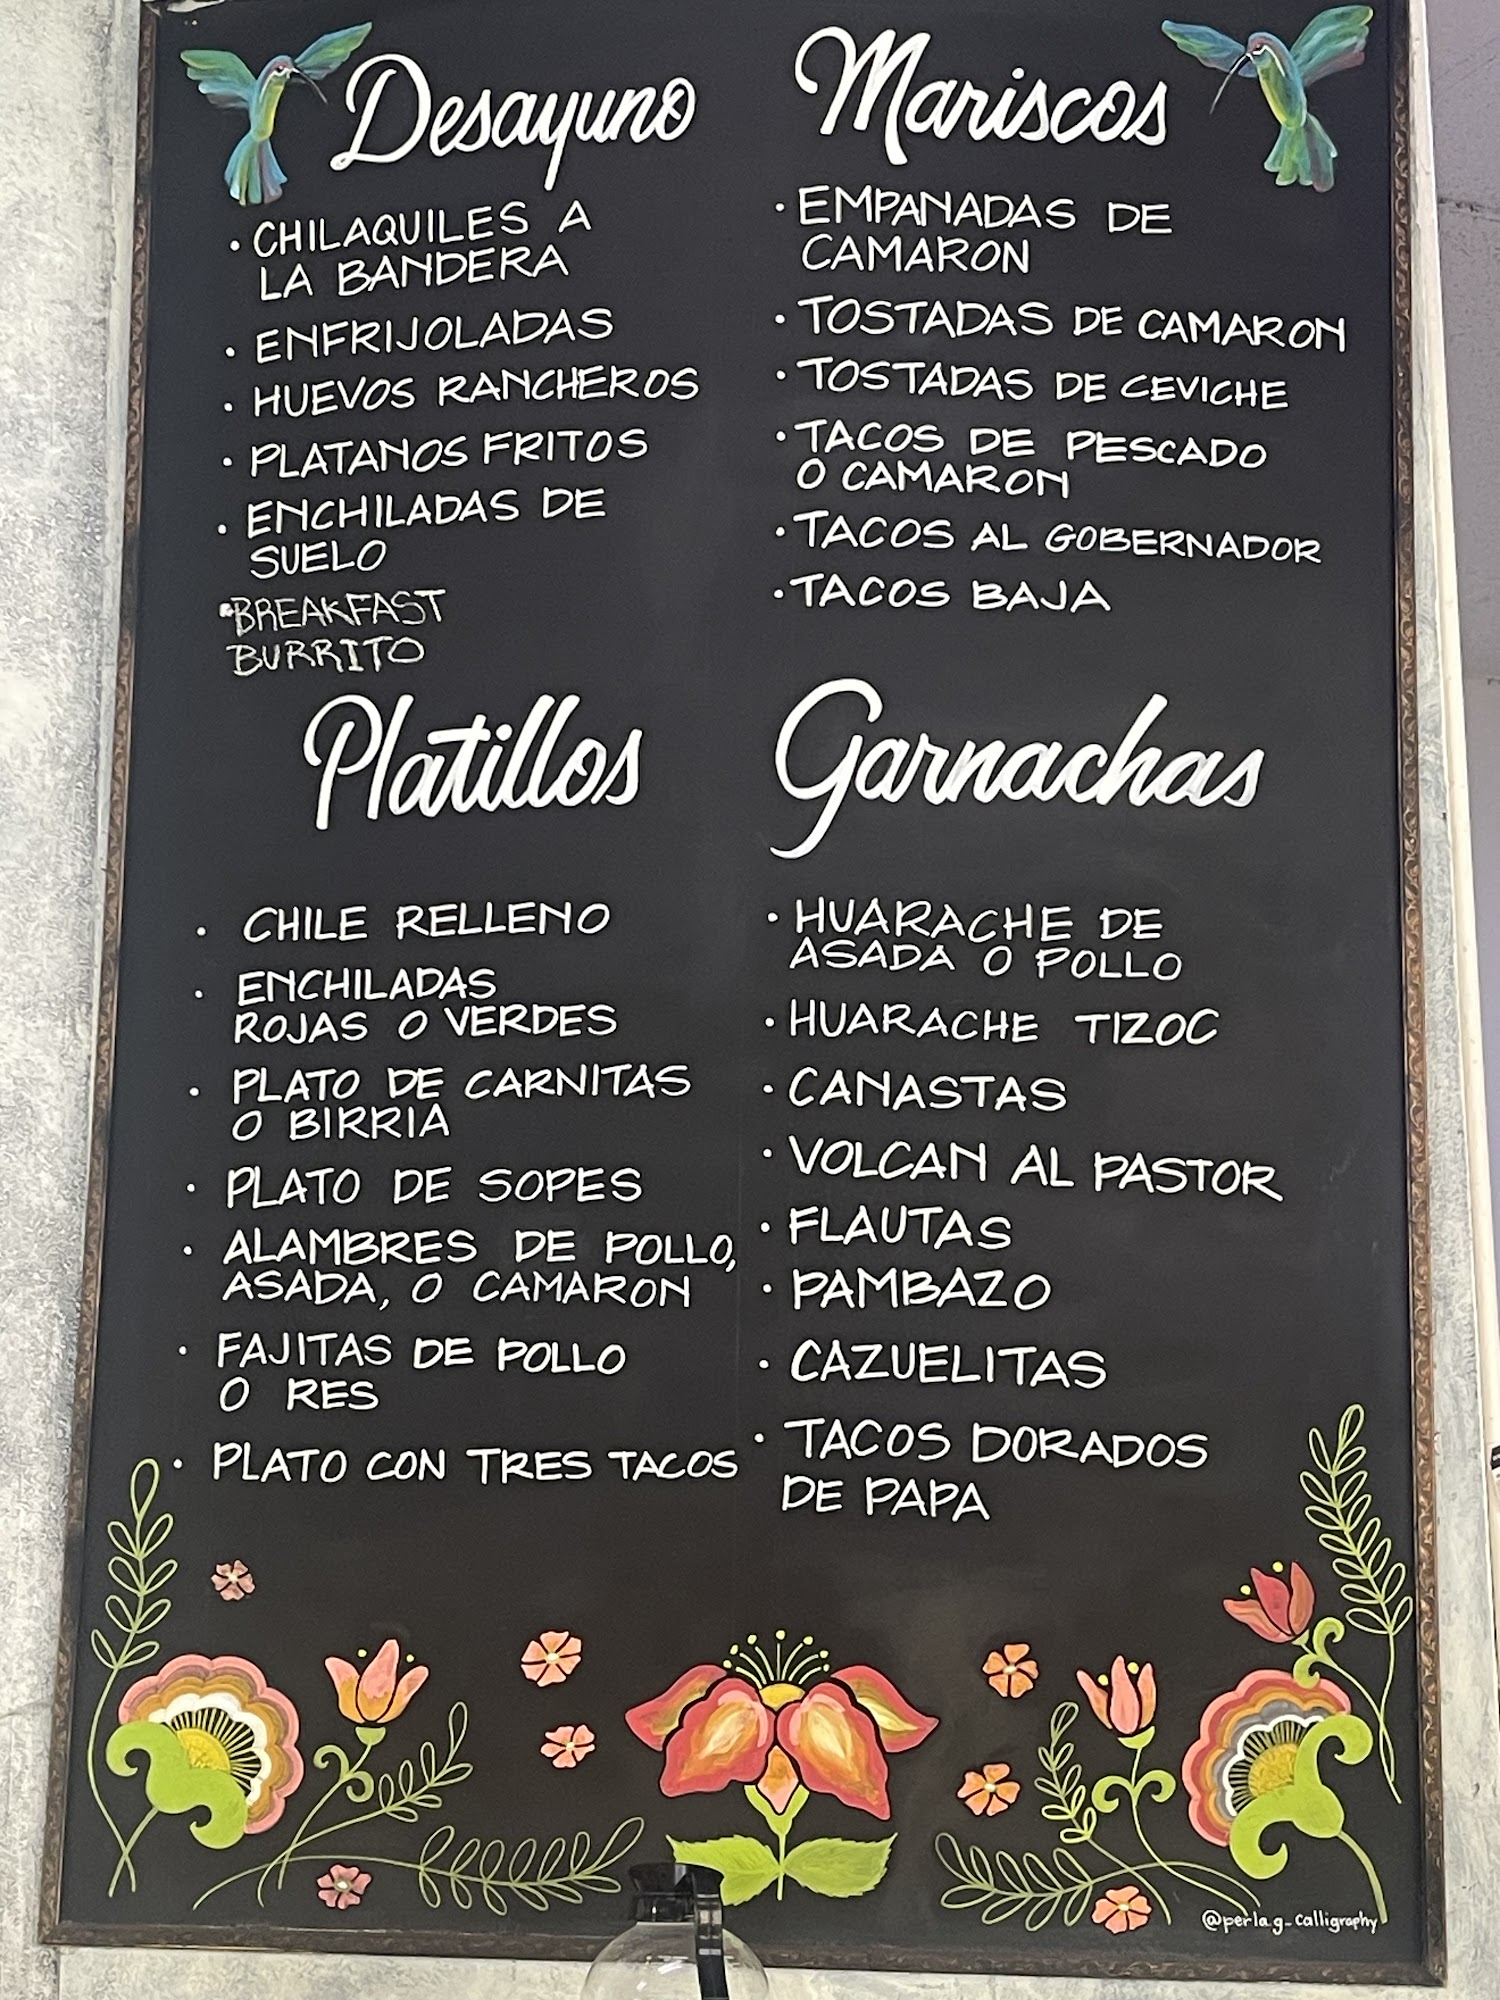 Desayuno
• CHILAQUILES A
LA BANDERA
• ENFRIJOLADAS
• HUEVOS RANCHEROS
• PLATANOS FRITOS
• ENCHILADAS DE
SUELO
• BREAKFAST
BURRITO
Mariscos
• EMPANADAS DE
CAMARON
• TOSTADAS DE CAMARON
• TOSTADAS DE CEVICHE
• TACOS DE PESCADO
O CAMARON
• TACOS AL GOBERNADOR
• TACOS BAJA
Platillos
• CHILE RELLENO
• ENCHILADAS
ROJAS O VERDES
• PLATO DE CARNITAS
O BIRRIA
• PLATO DE SOPES
• ALAMBRES DE POLLO,
ASADA, O CAMARON
• FAJITAS DE POLLO
O RES
• PLATO CON TRES TACOS
Garnachas
• HUARACHE DE
ASADA O POLLO
• HUARACHE TIZOC
• CANASTAS
• VOLCAN AL PASTOR
• FLAUTAS
• PAMBAZO
• CAZUELITAS
• TACOS DORADOS
DE PAPA
@perla.g_calligraphy